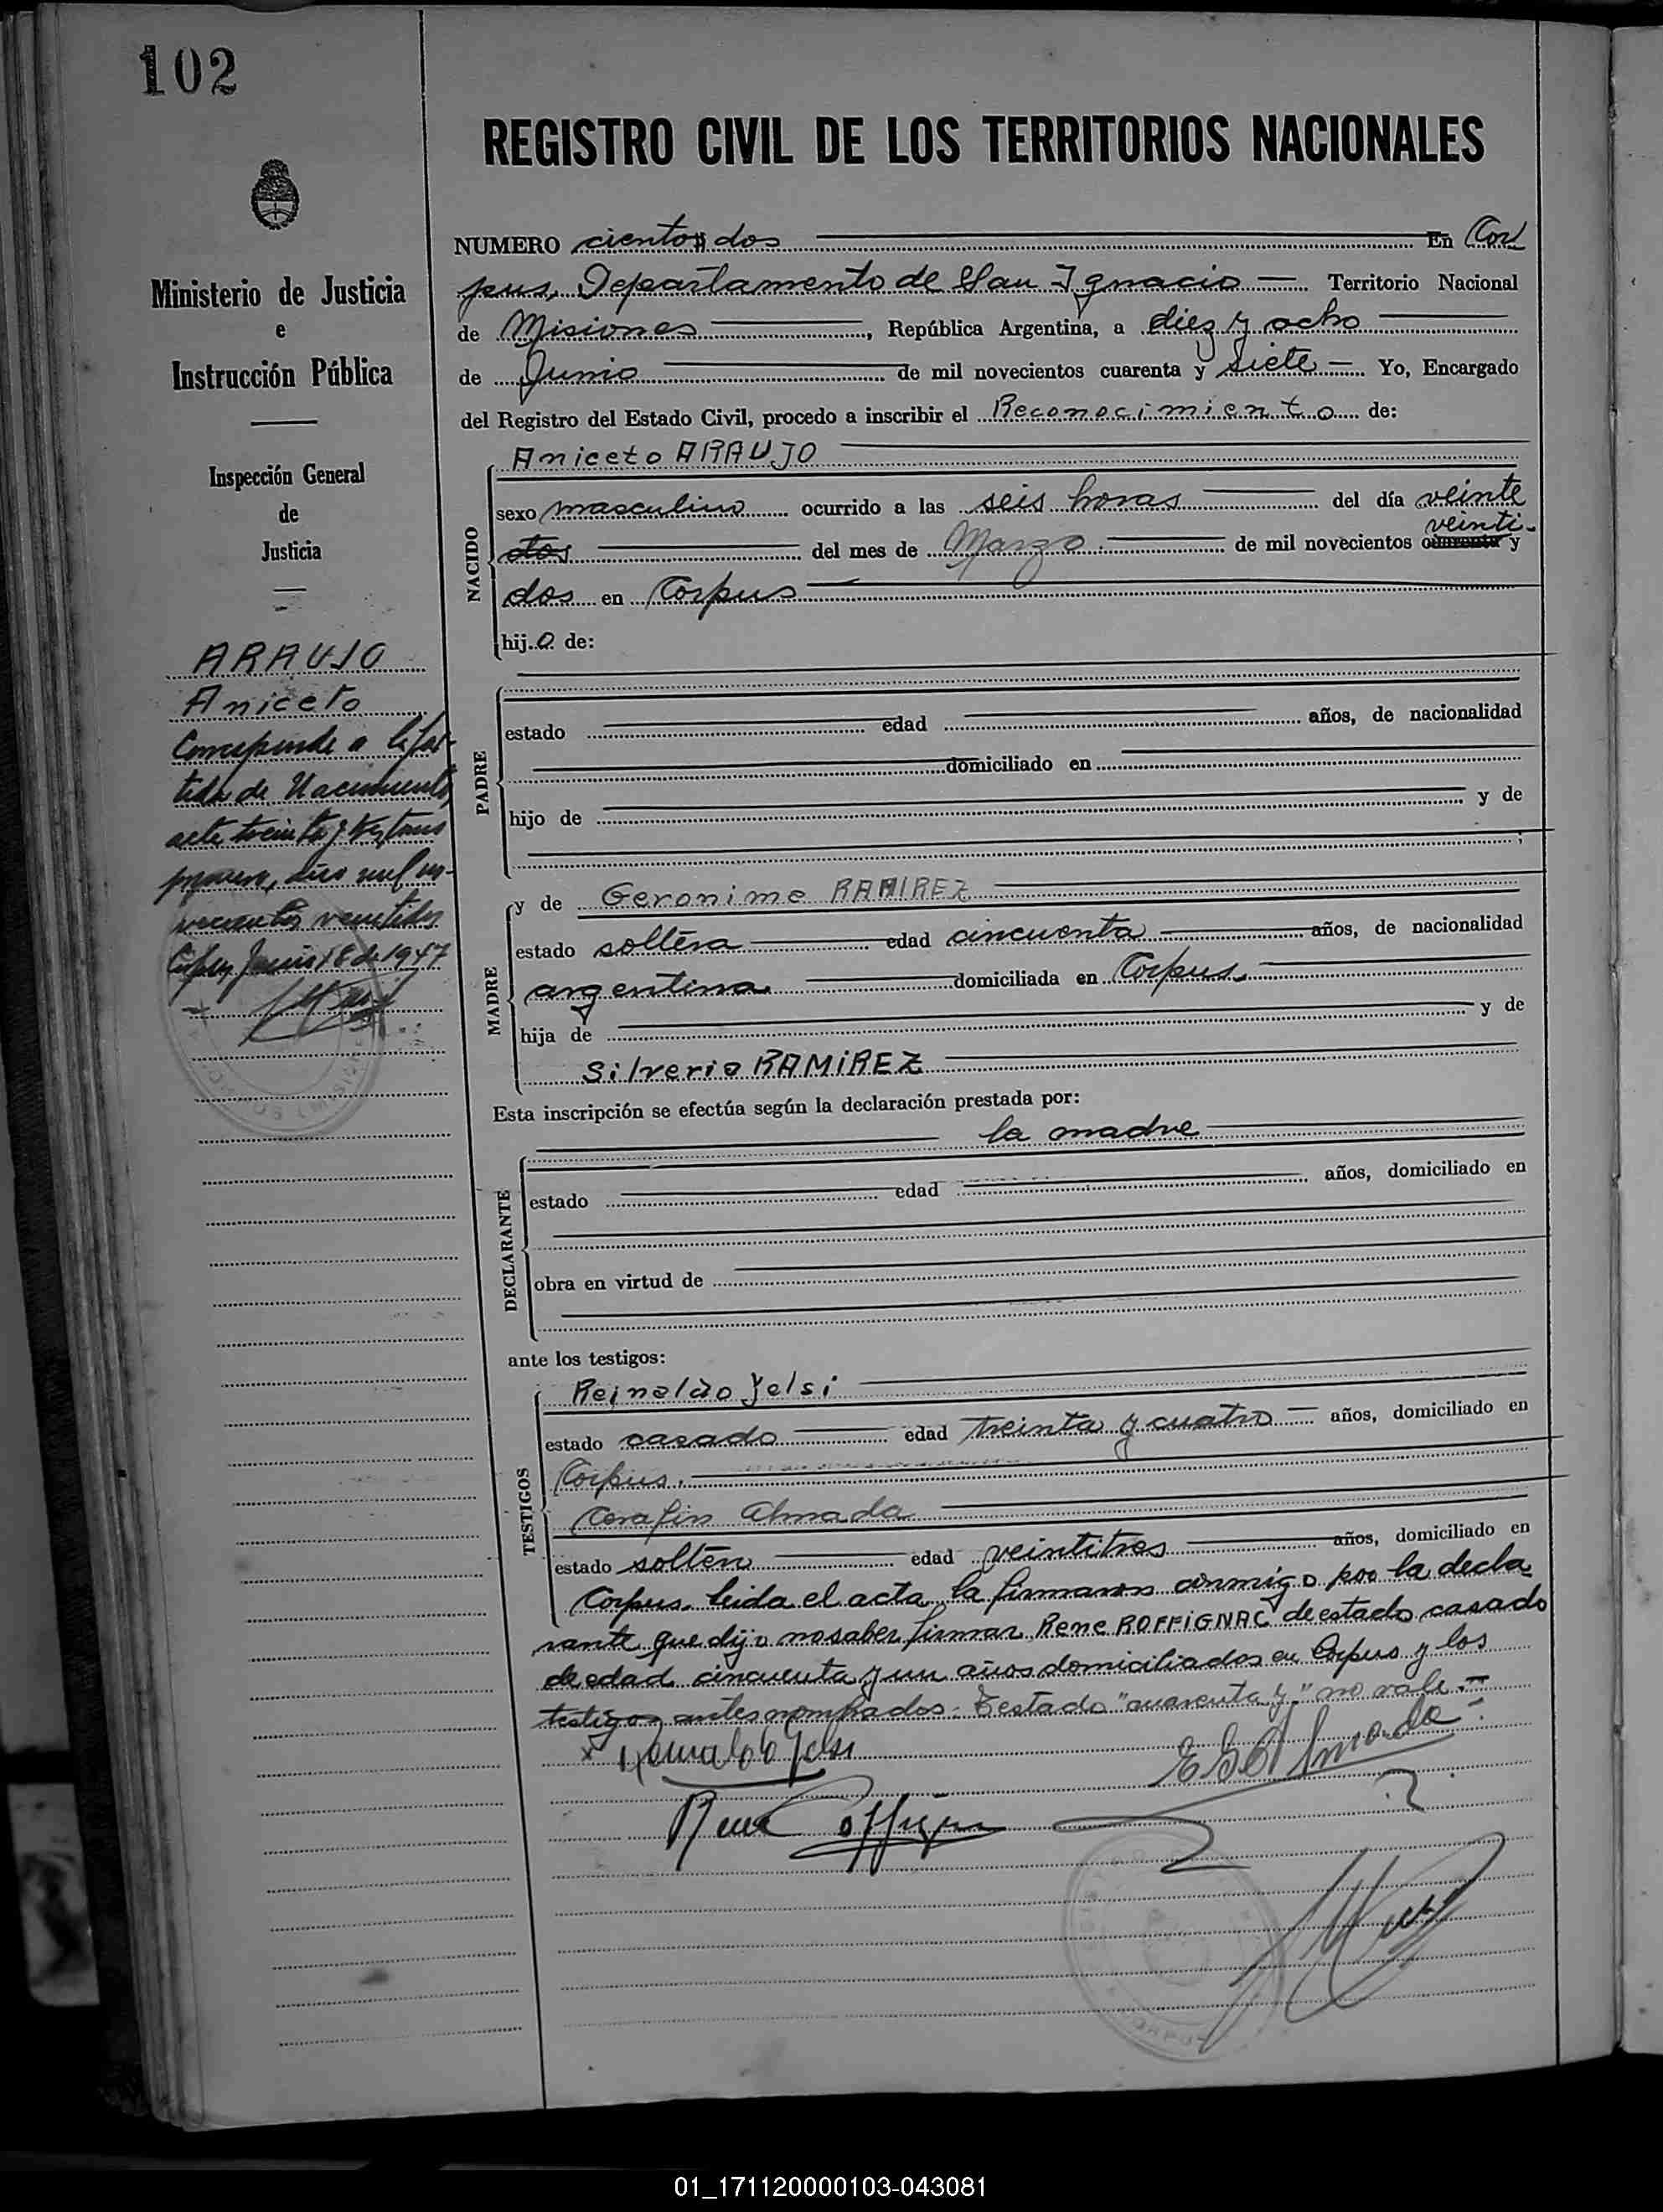 102
REGISTRO CIVIL DE LOS TERRITORIOS NACIONALES
Ministerio de Justicia
e
Instrucción Pública
Inspección General
de
Justicia
ARAUJO
Aniceto
Corresponde a la par-
tida de Nacimiento,
acta treinta y tomo
primero, año mil no-
vecientos veintidos
Corpus, Junio 18 de 1947
NUMERO ciento dos En Cor
pus, Departamento de San Ignacio Territorio Nacional
de Misiones, República Argentina, a diez y ocho
de Junio de mil novecientos cuarenta y siete Yo, Encargado
del Registro del Estado Civil, procedo a inscribir el Reconocimiento de:
NACIDO
Aniceto ARAUJO
sexo masculino ocurrido a las seis horas del día veinte
veinti-
dos del mes de Marzo de mil novecientos cuarenta y
dos en Corpus
hijo de:
PADRE
estado edad años, de nacionalidad
domiciliado en
hijo de y de
;
MADRE
y de Geronima RAMIREZ
estado soltera edad cincuenta años, de nacionalidad
argentina domiciliada en Corpus.
hija de y de
Silveria RAMIREZ
Esta inscripción se efectúa según la declaración prestada por:
la madre
DECLARANTE
estado edad años, domiciliado en
obra en virtud de
ante los testigos:
TESTIGOS
Reinaldo Jelsi
estado casado edad treinta y cuatro años, domiciliado en
Corpus.
Cerafin Almada
estado soltero edad veintitres años, domiciliado en
Corpus. Leida el acta la firmaron conmigo por la decla
rante que dijo no saber firmar Rene ROFFIGNAC de estado casado
de edad cincuenta y un años domiciliados en Corpus y los
testigos antes nombrados. Testado "cuarenta y" no vale.
Reinaldo Jelsi
E S Almada
Rene Roffignac
01_171120000103-043081